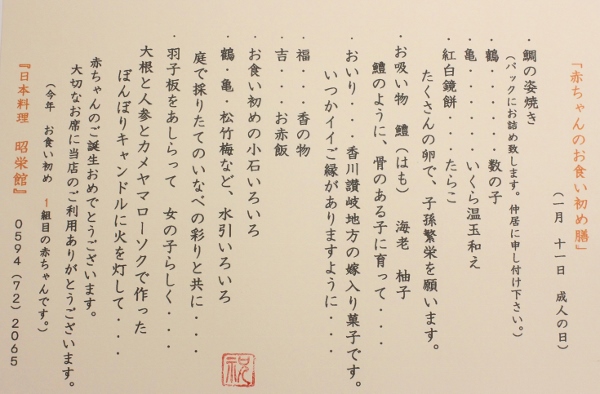 「赤ちゃんのお食い初め膳」
(一月 十一日 成人の日)
・鯛の姿焼き
(パックにお詰め致します。仲居に申し付け下さい。)
・鶴・・・・・数の子
・亀・・・・・いくら温玉和え
・紅白鏡餅・・・たらこ
たくさんの卵で、子孫繁栄を願います。
・お吸い物 鱧(はも) 海老 柚子
鱧のように、骨のある子に育って・・・
・おいり・・・香川讃岐地方の嫁入り菓子です。
いつかイイご縁がありますように・・・・
・福・・・香の物
・吉・・・お赤飯
・お食い初めの小石いろいろ
・鶴・亀・松竹梅など、水引いろいろ
庭で採りたてのいなべの彩りと共に・・・・
・羽子板をあしらって 女の子らしく・・・
大根と人参とカメヤマローソクで作った
ぼんぼりキャンドルに火を灯して・・・・
赤ちゃんのご誕生おめでとうございます。
大切なお席に当店のご利用ありがとうございます。
(今年 お食い初め 1組目の赤ちゃんです。)
『日本料理 昭栄館』 0594(72)2065
祝